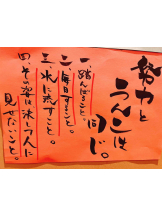 努力と
うんこは
同じ。
一、踏んばること。
二、毎日すること。
三、水に流すこと。
四、その姿は決して人に
見せないこと。